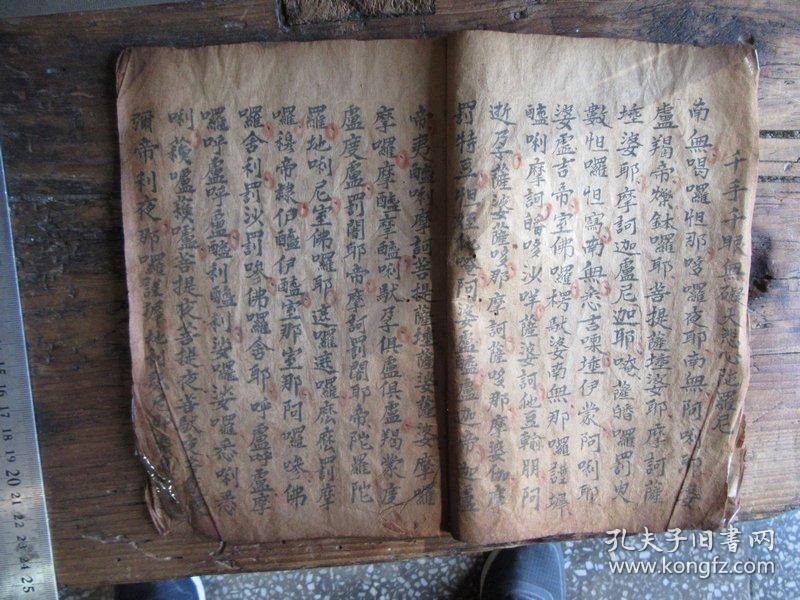 千手千眼無礙大悲心陀羅尼
南無喝囉怛那哆囉夜耶南無阿唎耶婆
盧羯帝爍鉢囉耶菩提薩埵婆耶摩訶薩
埵婆耶摩訶迦盧尼迦耶唵薩皤囉罰曳
數怛囉怛寫南無悉吉嘌埵伊蒙阿唎耶
婆盧吉帝室佛囉楞馱婆南無那囉謹墀
醯唎摩訶皤哆沙咩薩婆訶他豆輸朋阿
逝孕薩婆薩哆那摩訶薩哆那摩婆伽摩
罰特豆怛姪他唵阿婆盧醯盧迦帝迦盧
帝夷醯唎摩訶菩提薩埵薩婆薩婆摩囉
摩囉摩醯摩醯唎馱孕俱盧俱盧羯蒙度
盧度盧罰闍耶帝摩訶罰闍耶帝陀羅陀
羅地唎尼室佛囉耶遮囉遮囉麽麽罰摩
囉穆帝隸伊醯伊醯室那室那阿囉嘇佛
囉舍利罰沙罰嘇佛囉舍耶呼盧呼盧摩
囉呼盧呼盧醯利醯利娑囉娑囉悉唎悉
唎蘇嚧蘇嚧菩提夜菩提夜菩馱夜
彌帝利夜那囉謹墀
25 24 23 22 21 20 19 18 17 16 15
孔夫子旧书网
www.kongfz.com